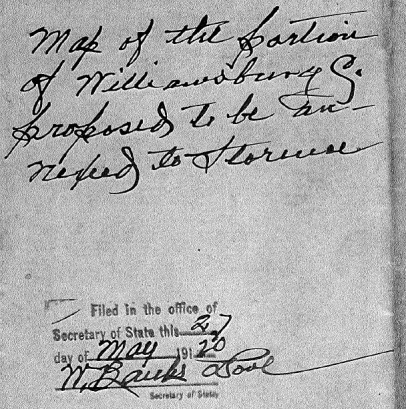 Map of the portion
of Williamsburg Co.
proposed to be an-
nexed to Florence
Filed in the office of
Secretary of State this 27
day of May 1920
W. Banks Dove
Secretary of State